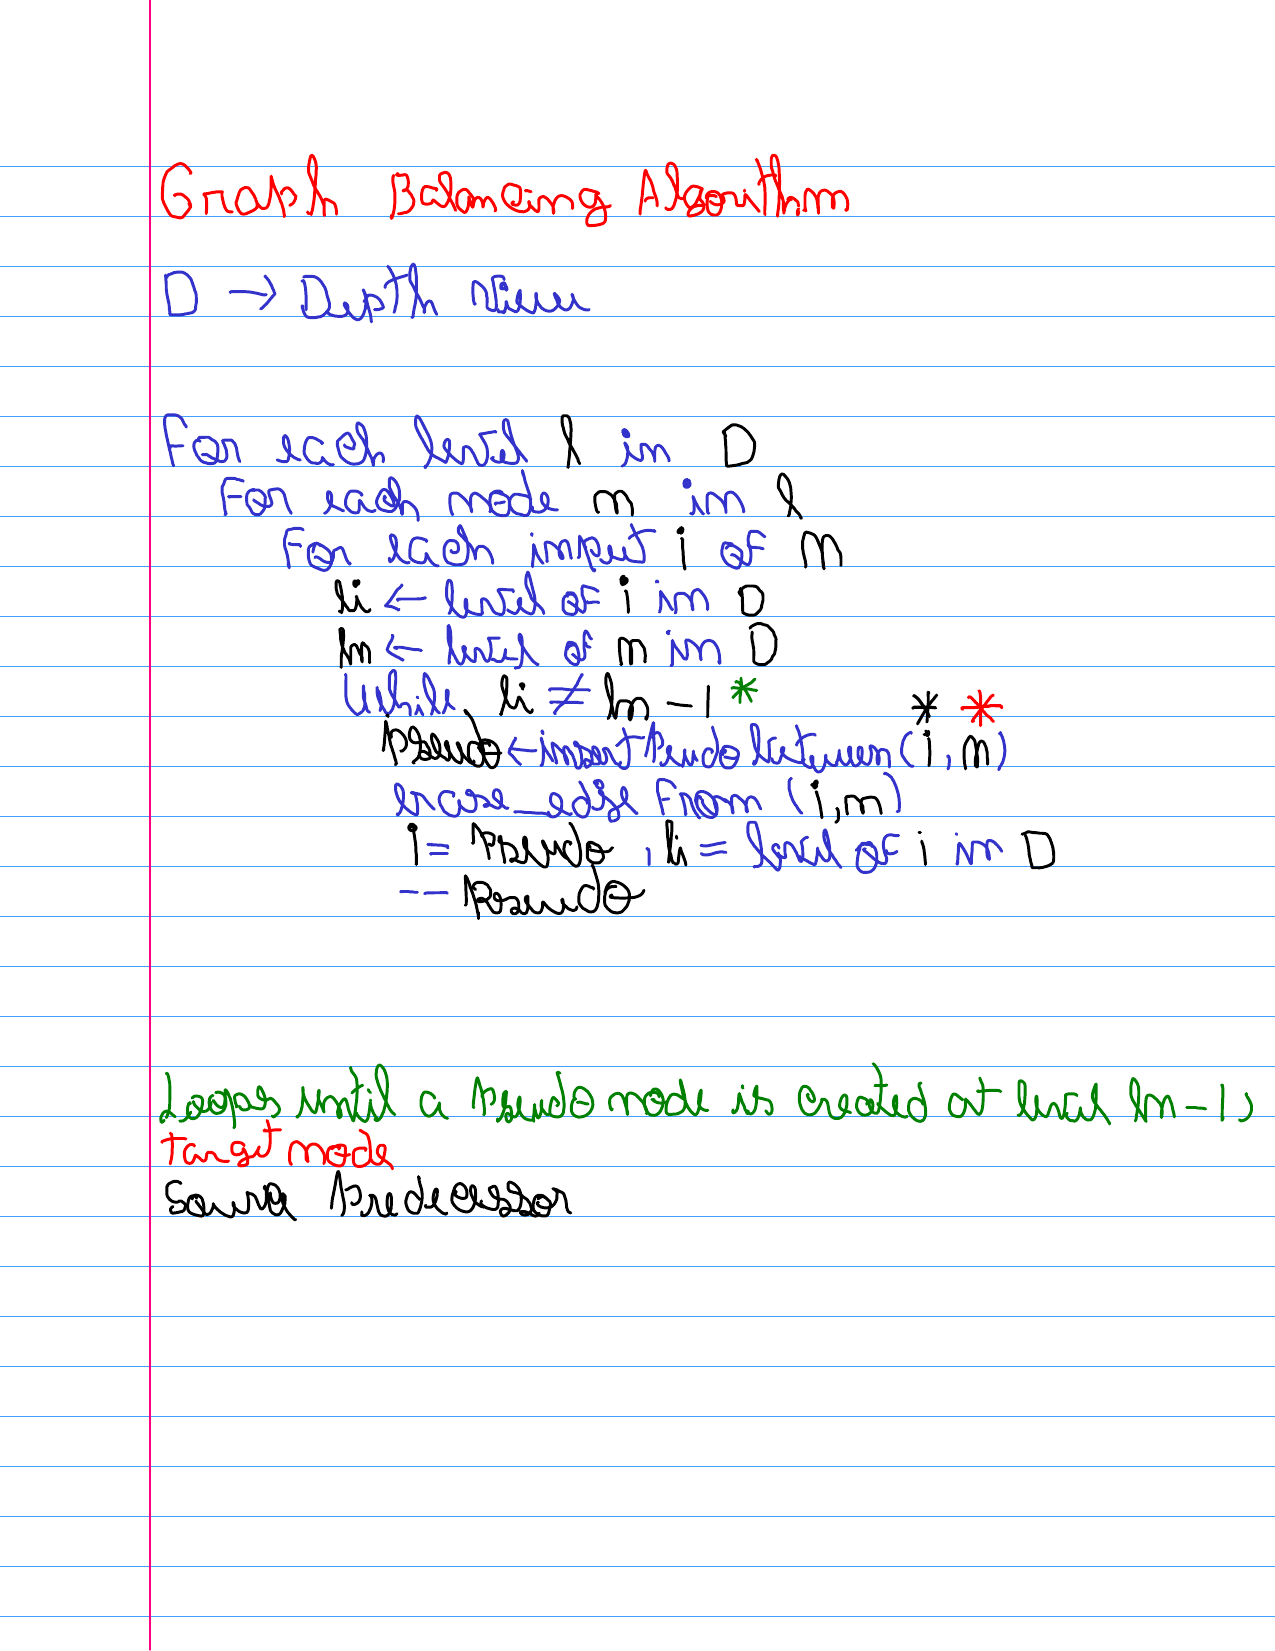 Graph Balancing Algorithm
D → Depth View
For each level l in D
For each node n in l
For each input i of n
li ← level of i in D
ln ← level of n in D
While li ≠ ln - 1 *
* *
pseudo ← insertPseudobetween(i, n)
erase_edge From (i, n)
i = pseudo , li = level of i in D
-- pseudo
Loops until a pseudo node is created at level ln - 1,
Target node
Source predecessor